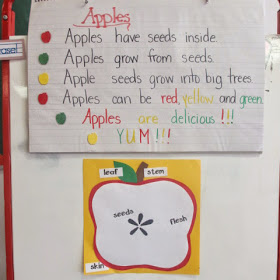 Apples
Apples have seeds inside.
Apples grow from seeds.
Apple seeds grow into big trees.
Apples can be red, yellow and green.
Apples are delicious!!!
YUM!!!
leaf
stem
seeds
flesh
skin